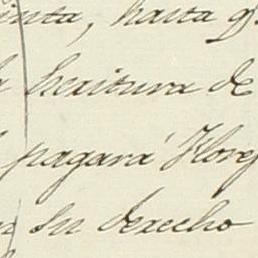 inta, hasta q
escritura de
pagará Flore
en su derecho